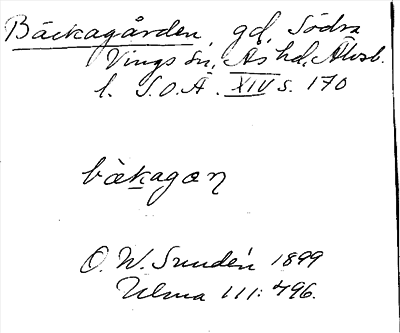 Bäckagården, gd, Södra
Vings sn, Ås hd, Älvsb.
l. S.O.Ä. XIV s. 170
bàkagan
O. W. Sundén 1899
Ulma 111: 496.